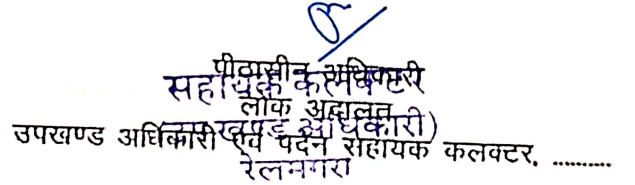 पीठासीन अधिकारी
सहायक कलक्टर
लोक अदालत
(उपखण्ड अधिकारी)
उपखण्ड अधिकारी एवं पदेन सहायक कलक्टर, ..........
रेलमगरा